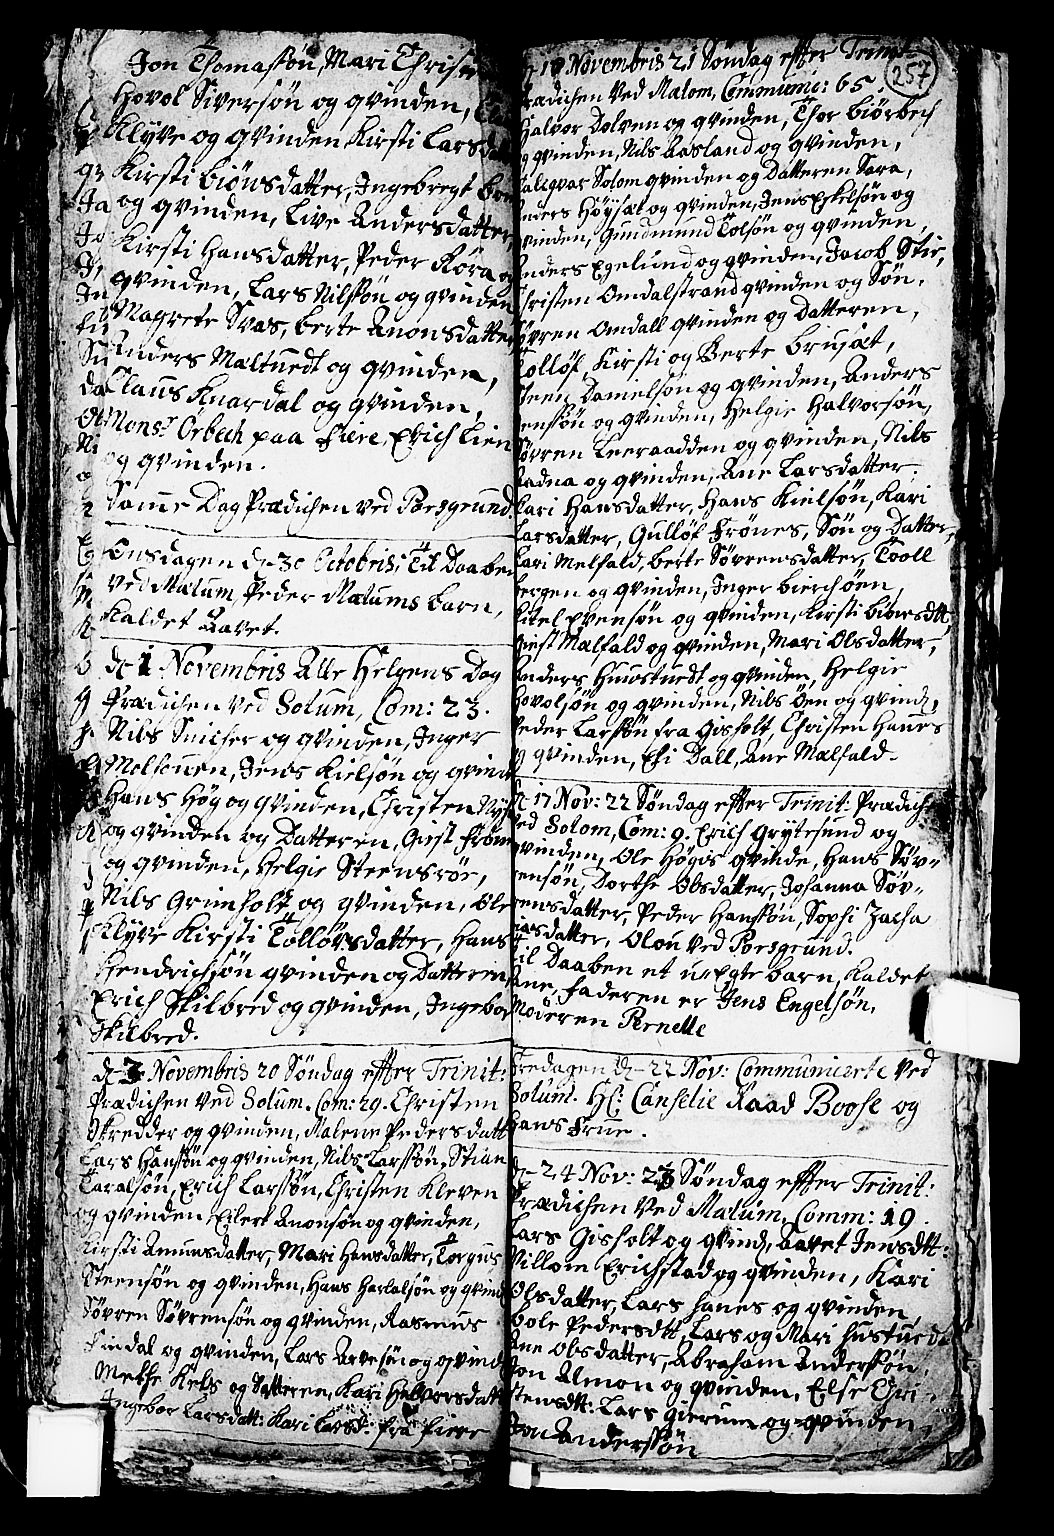 Jon Thomassøn, Mari Chris
Hovol Siversøn og qvinden,
Klyve og qvinden Kirsti Lars
Kirsti Biönsdatter, Ingebregt
og qvinden, Live Andersdatter,
Kirsti Hansdatter, Peder Köra og
qvinden, Lars Nilssøn og qvinden
Magrete Svas, berte Anonsdatter
Anders Maltuedt og qvinden,
Claus Knardal og qvinden,
Monsr Örbech paa fiere, Erich Lien
og qvinden.
Samme Dag Prædichen ved Porsgrund.
Onsdagen d- 30 Octobris; Til Daaben
ved Mælum, Peder Mælums barn,
Kaldet Aavet.
d- 1 Novembris Alle Helgens Dag
Prædichen ved Solum, Com: 23.
Nils Snicher og qvinden, Inger
Molteuen, Jens Kielsøn og qvind
Hans Høg og qvinden, Christen Nys
og qvinden og Datteren, Giest From
og qvinden, Helgie Steensröe,
Nils Grimholt og qvinden, Ole
Klyve Kirsti Tollövsdatter, Hans
Hendrichsøn qvinden og Datteren,
Erich Skilbred og qvinden, Ingebor
Skilbred.
d- 3 Novembris 20 Søndag effter Trinit:
Prædichen ved Solum. Com: 29. Christen
Skredder og qvinden, Malene Peders datt
Lars Hanssøn og qvinden, Nils Larssøn, Stian
Taralsøn, Erich Larssøn, Christen Kleven
og qvinden, Eilert Anonsøn og qvinden,
Kirsti Amunsdatter, Mari Hansdatter, Torgus
Steensøn og qvinden, Hans Harlalsøn og qvind
Søvren Søvrensøn og qvinden, Rasmus
Findal og qvinden, Lars Arvesøn og qvind
Methe Kebs og Datteren, Kari Halvorsdatt
Ingebor Larsdatt: Kari Larsd: fra fiere
257
10 Novembris 21 Søndag effter Trinit
Prædichen ved Mælom, Communic: 65.
Halvor Dolven og qvinden, Thor Biörbech
og qvinden, Nils Aasland og qvinden,
Solom qvinden og Datteren Sara,
Anders Höysæt og qvinden, Jens Eskelsøn og
qvinden, Gundmund Tolsøn og qvinden,
Anders Egelund og qvinden, Jacob Stie,
Christen Omdalstrand qvinden og Søn,
Søvren Omdall qvinden og Datteren,
Tolløf, Kirsti og Berte Brusæt,
Danielsøn og qvinden, Anders
Jenssøn og qvinden, Helgie Halvorsøn,
Søvren Leeraadden og qvinden, Nils
og qvinden, Ane Larsdatter,
Kari Hansdatter, Hans Kielsøn, Kari
Larsdatter, Gulløf Frönes, Søn og Datter,
Kari Melfald, berte Søvrensdatter, Tooll
Bergen og qvinden, Inger Bierchöen,
Kitel Evensøn og qvinden, Kirsti biörnsdtt,
Giest Mælfald og qvinden, Mari Olsdatter,
Anders og qvinden, Helgie
Hovolsøn og qvinden, Nils Öen og qvind,
Peder Larssøn fra Gisholt, Christen Hanes
og qvinden, Efi Dall, Ane Mælfald.
d- 17 Nov: 22 Søndag effter Trinit: Prædich
ved Solom, Com: 9. Erich Grytesund og
qvinden, Ole Högis qvinde, Hans Søv-
rensøn, Dorthe Olsdatter, Johanna Søv-
rensdatter, Peder Hanssøn, Sophi Zacha
riasdatter, Olou ved Porsgrund.
Til Daaben et uægte barn, Kaldet
Ane, Faderen er Jens Engelsøn,
Moderen Pernelle
Fredagen d- 22 Nov: Communicerte ved
Solum. Hr: Cancelie Raad Boose og
hans Frue.
d- 24 Nov: 23 Søndag effter Trinit:
Prædichen ved Mælum, Comm: 19.
Lars Gisholt og qvind, Aavet Jensdtt:
Villom Erichstad og qvinden, Kari
Olsdatter, Lars hanes og qvinden
bole Pedersdtt, Lars og Mari
Ane Olsdatter, Abraham Anderssøn,
Jon Almon og qvinden, Else Chri-
stensdtt: Lars Gierum og qvinden,
Jon Anderssøn